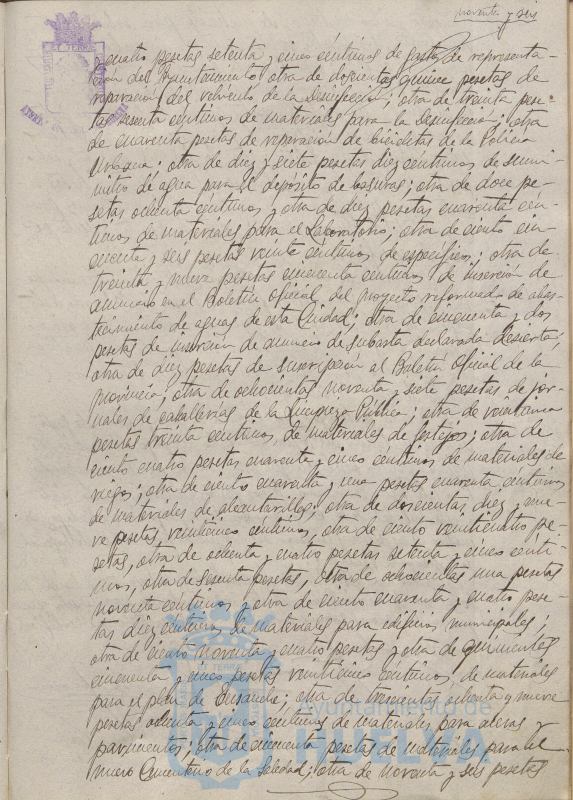 noventa y seis
cuatro pesetas setenta y cinco céntimos de gastos de representa-
ción del Ayuntamiento; otra de doscientas quince pesetas de
reparación del vehículo de la Desinfección; otra de treinta pese-
tas sesenta céntimos de materiales para la Desinfección; otra
de cuarenta pesetas de reparación de bicicletas de la Policía
Urbana; otra de diez y siete pesetas diez céntimos de sumi-
nistro de agua para el depósito de basuras; otra de doce pe-
setas ochenta céntimos y otra de diez pesetas cuarenta cén-
timos de materiales para el Laboratorio; otra de ciento cin-
cuenta y seis pesetas veinte céntimos de específicos; otra de
treinta y nueve pesetas cincuenta céntimos de inserción de
anuncio en el Boletín Oficial del proyecto reformado de abas-
tecimiento de aguas de esta Ciudad; otra de cincuenta y dos
pesetas de inserción de anuncio de subasta declarada desierta;
otra de diez pesetas de suscripción al Boletín Oficial de la
provincia; otra de ochocientas noventa y siete pesetas de jor-
nales de caballerías de la Limpieza Pública; otra de veinticinco
pesetas treinta céntimos de materiales de festejos; otra de
ciento cuatro pesetas cuarenta y cinco céntimos de materiales de
riegos; otra de ciento cuarenta y una pesetas cuarenta céntimos
de materiales de alcantarillas; otra de doscientas diez y nue-
ve pesetas, veinticinco céntimos, otra de ciento veinticuatro pe-
setas, otra de ochenta y cuatro pesetas setenta y cinco cénti-
mos, otra de sesenta pesetas, otra de ochocientas una pesetas
noventa céntimos y otra de ciento cuarenta y cuatro pese-
tas diez céntimos de materiales para edificios municipales;
otra de ciento noventa y cuatro pesetas y otra de quinientas
cincuenta y cinco pesetas veinticinco céntimos, de materiales
para el plan de Ensanche; otra de trescientas ochenta y nueve
pesetas ochenta y cinco céntimos de materiales para aceras y
pavimentos; otra de cincuenta pesetas de materiales para el
nuevo Cementerio de la Soledad; otra de noventa y seis pesetas
Ayuntamiento de
HUELVA